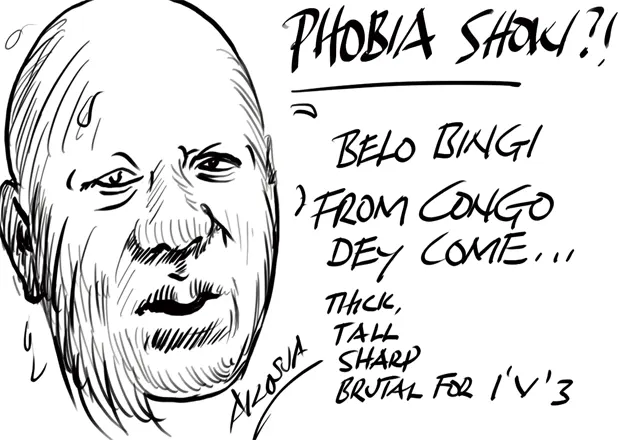 PHOBIA SHOW?!
BELO BINGI
FROM CONGO
DEY COME...
THICK,
TALL
SHARP
BRUTAL FOR 1'V'3
AKOSUA